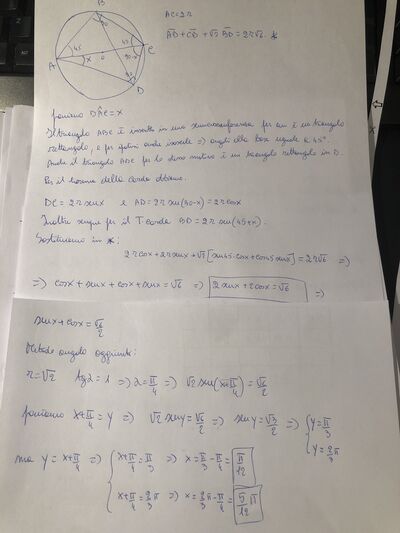 B
AC=2r
90
A̅D̅+C̅D̅+√2 B̅D̅=2r√6 *
45
45
A
x
o
90-x
C
90
D
poniamo DÂC=x
Il triangolo ABC è inscritto in una semicirconferenza per cui è un triangolo
rettangolo, e per ipotesi anche isoscele => angoli alla base uguale a 45°.
Anche il triangolo ADC per lo stesso motivo è un triangolo rettangolo in D.
Per il teorema della corda abbiamo:
DC = 2r sinx e AD=2r sin(90-x)=2r cosx
Inoltre sempre per il T corda BD=2r sin(45+x).
Sostituiamo in *:
2r cosx+2r sinx+√2[sin45·cosx+cos45 sinx]=2r√6 =>
=> cosx+sinx+cosx+sinx=√6 => 2sinx+2cosx=√6 =>
sinx+cosx=√6/2
Metodo angolo aggiunto:
r=√2 tgα=1 => α=π/4 => √2 sin(x+π/4)=√6/2
poniamo x+π/4=y => √2 siny=√6/2 => siny=√3/2 => { y=π/3
y=2/3π
ma y=x+π/4 => { x+π/4=π/3 => x=π/3-π/4= π/12
x+π/4=2/3π => x=2/3π-π/4= 5/12π